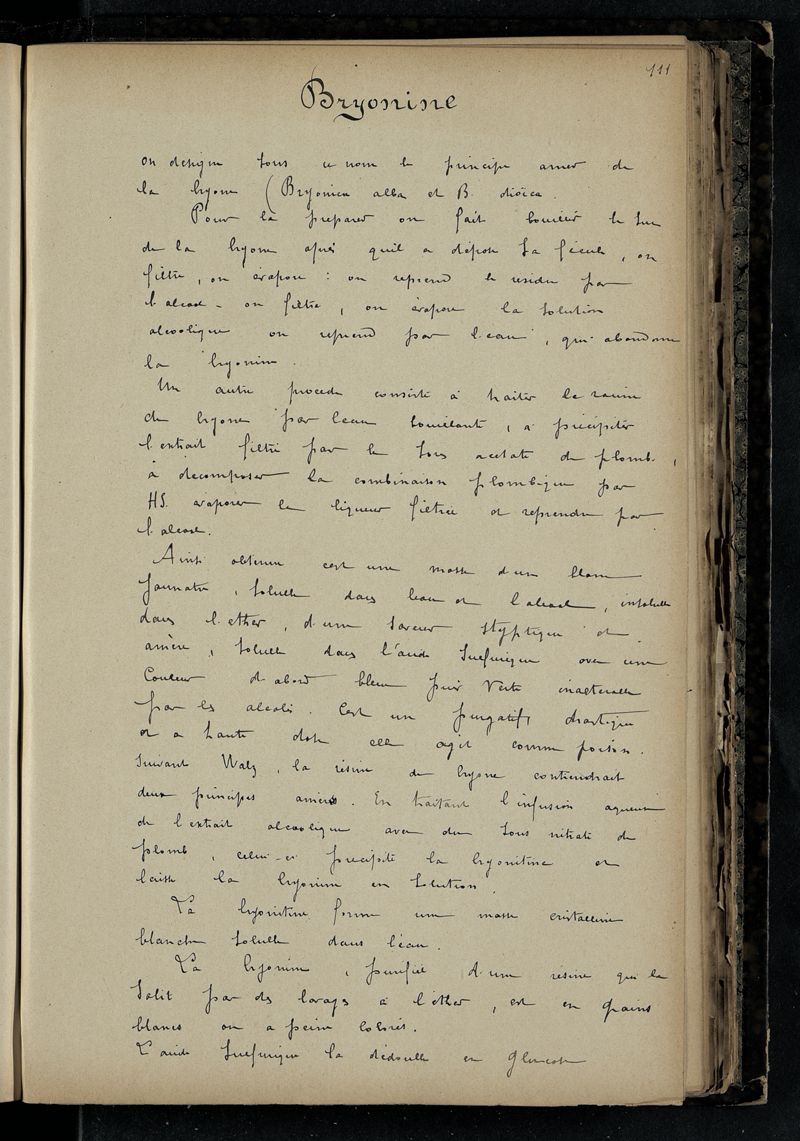 111
Bryonine
on designe sous ce nom le principe amer de
la bryone (Bryonica alba et B. dioïca.
Pour la preparer on fait bouillir le suc
de la bryone après qu'il a déposé sa fécule, on
filtre, on évapore : on reprend le residu par
l'alcool - on filtre, on évapore la solution
alcoolique on reprend par l'eau, qui abandonne
la bryonine.
Un autre procede consiste à traiter la racine
de bryone par l'eau bouillante, à précipiter
l'extrait filtré par le sous acetate de plomb,
à decomposer la combinaison plombique par
HS. evaporer la liqueur filtrée et reprendre par
l'alcool.
Ainsi obtenue c'est une masse d'un blanc
jaunatre, soluble dans l'eau et l'alcool, insoluble
dans l'ether, d'une saveur styptique et
amère, soluble dans l'acide sulfurique avec une
couleur d'abord bleue puis verte inalterable
par les alcalis. C'est un purgatif drastique
et a haute dose elle agit comme poison.
Suivant Walz, la résine de bryone contiendrait
deux principes amers. En traitant l'infusion aqueuse
de l'extrait alcoolique avec du sous nitrate de
plomb, celui-ci precipite la bryonitine et
laisse la bryonine en solution.
La bryonitine forme une masse cristalline
blanche soluble dans l'éau.
La bryonine, purifiée d'une résine qui la
salit par des lavages à l'ether, est en grains
blancs ou a peine colorés.
L'acide sulfurique la dédouble en glucose